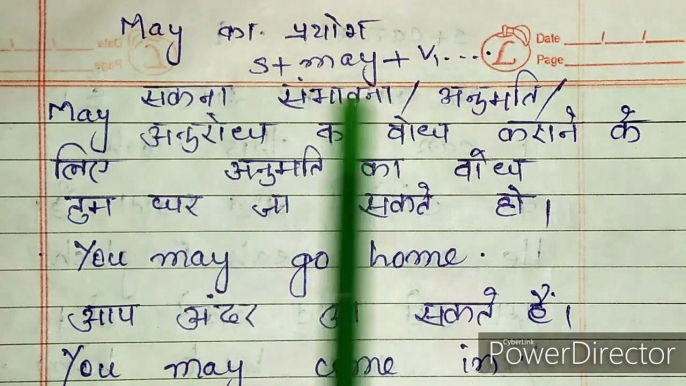 May का प्रयोग
S+ may + V₁....
Date
Page
May सकना संभावना / अनुमति /
अनुरोध का बोध कराने के
लिए अनुमति का बोध
तुम घर जा सकते हो।
You may go home.
आप अंदर आ सकते हैं।
CyberLink
PowerDirector
You may come in